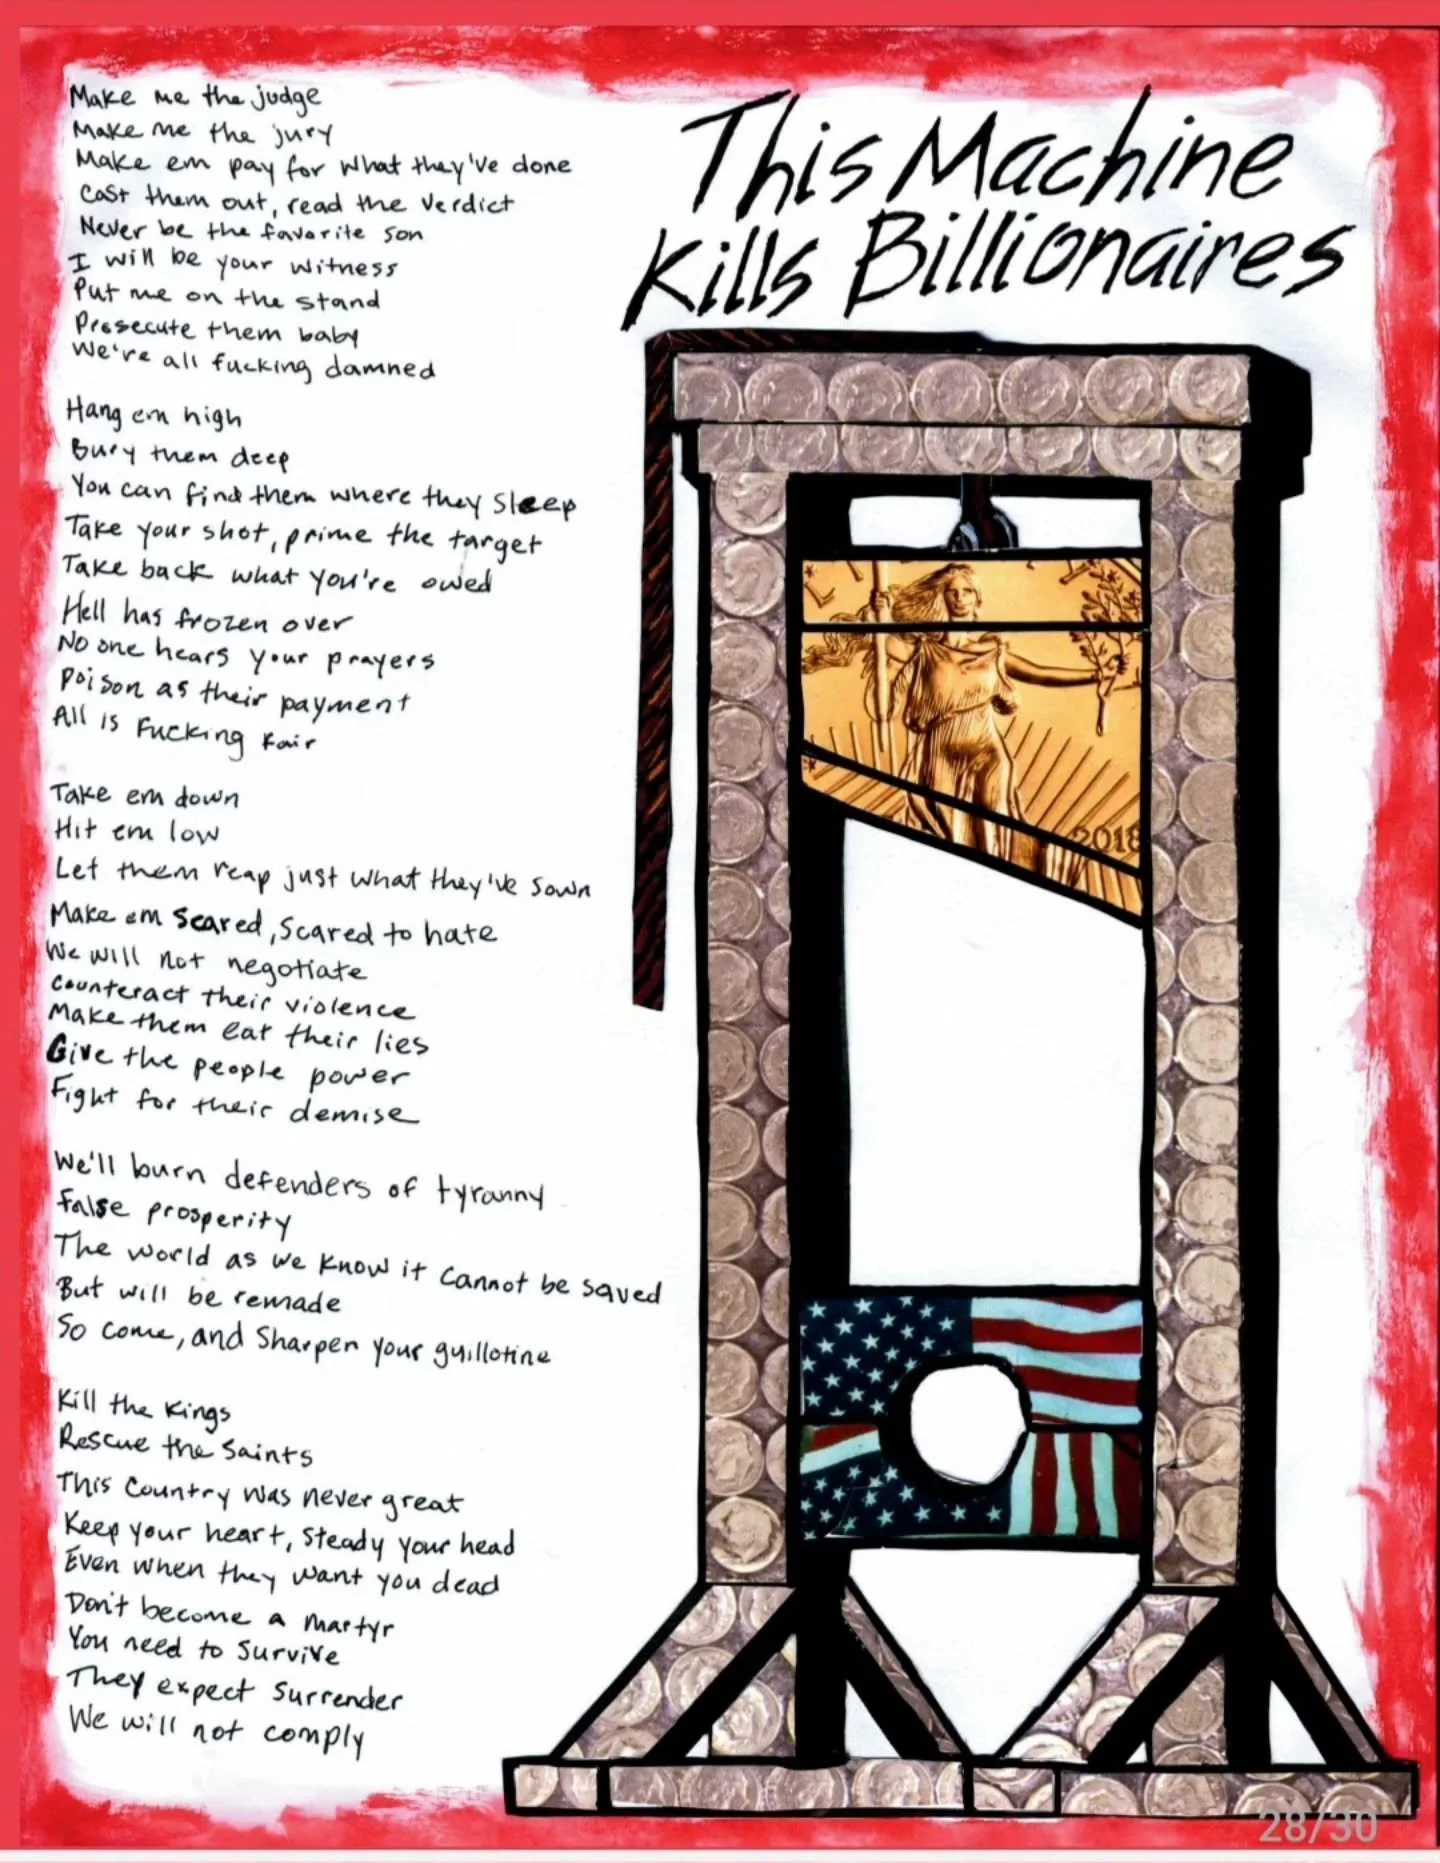 This Machine
Kills Billionaires
Make me the judge
Make me the jury
Make em pay for what they've done
Cast them out, read the verdict
Never be the favorite son
I will be your witness
Put me on the stand
Prosecute them baby
We're all fucking damned
Hang em high
Bury them deep
You can find them where they sleep
Take your shot, prime the target
Take back what you're owed
Hell has frozen over
No one hears your prayers
Poison as their payment
All is Fucking Fair
Take em down
Hit em low
Let them reap just what they've sown
Make em scared, scared to hate
We will not negotiate
Counteract their violence
Make them eat their lies
Give the people power
Fight for their demise
We'll burn defenders of tyranny
False prosperity
The world as we know it cannot be saved
But will be remade
So come, and sharpen your guillotine
Kill the Kings
Rescue the Saints
This Country was never great
Keep your heart, steady your head
Even when they want you dead
Don't become a martyr
You need to survive
They expect surrender
We will not comply
2018
28/30